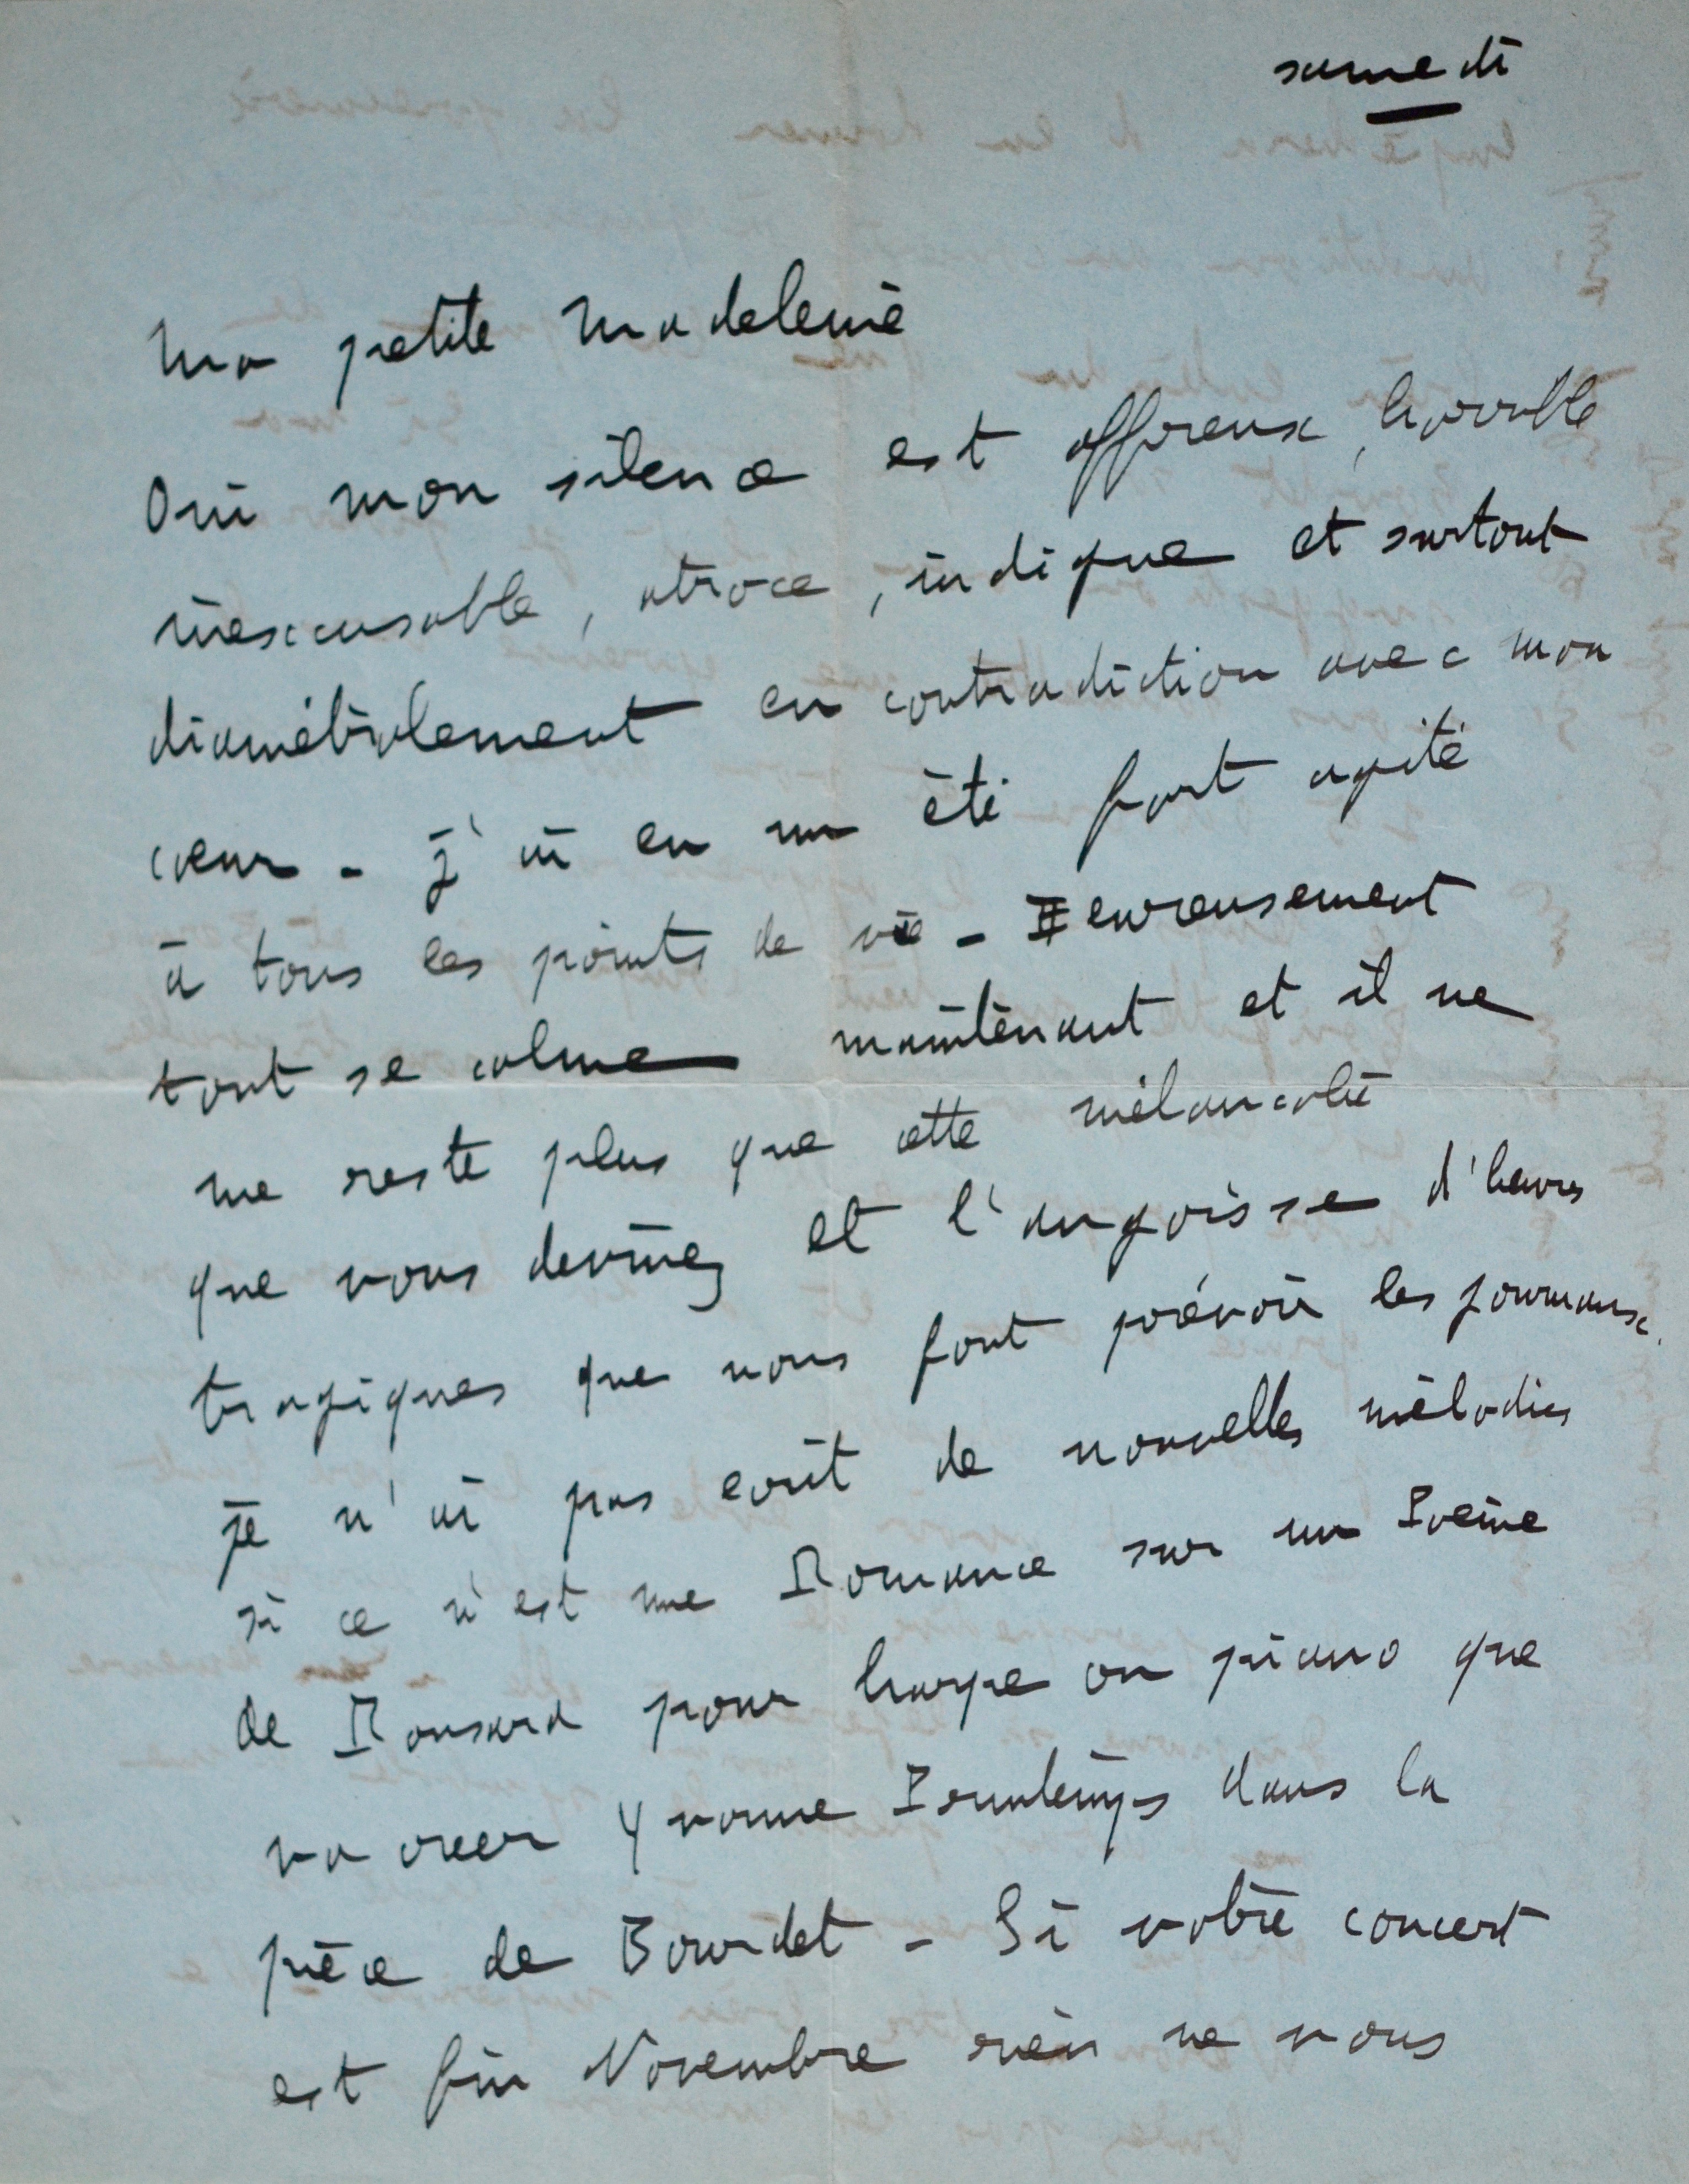 samedi
Ma petite Madeleine
Oui mon silence est affreux, horrible
inexcusable, atroce, indigne et surtout
diamétralement en contradiction avec mon
cœur - J'ai eu un été fort agité
à tous les points de vue - Heureusement
tout se calme maintenant et il ne
me reste plus que cette mélancolie
que vous devinez et l'angoisse d'heures
tragiques que nous font prévoir les journaux.
je n'ai pas ecrit de nouvelles mélodies
si ce n'est une Romance sur un Poème
de Ronsard pour harpe ou piano que
va creer Yvonne Printemps dans la
pièce de Bourdet - Si votre concert
est fin Novembre rien ne vous